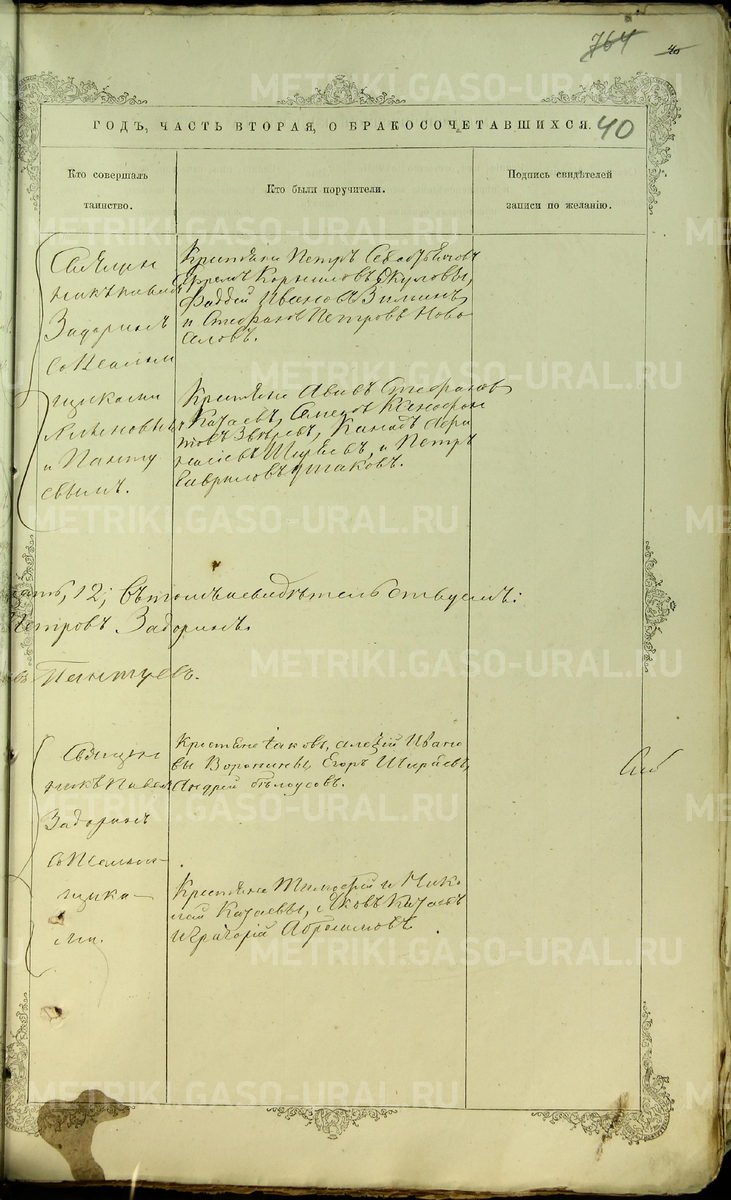 764
40
ГОДЪ, ЧАСТЬ ВТОРАЯ, О БРАКОСОЧЕТАВШИХСЯ.
40
Кто совершалъ
таинство.
Кто были поручители.
Подпись свидѣтелей
записи по желанію.
Священ
никъ Павелъ
Задоринъ
со Псалом
щиками
и Панту
евымъ.
Крестьяне Петръ
Ефремъ Корниловъ Окуловы,
Фаддей Иванов Зиминъ,
и Стефанъ Петровъ Ново
селовъ.
Крестьяне Авивъ Стефанов
Качаевъ, Ксенофон
товъ Звѣревъ,
и Петръ
Гавриловъ
12; въ томъ свидѣтельствуемъ:
Петровъ Задоринъ.
Пантуевъ.
Священ
никъ Павел
Задоринъ
со Псалом-
щика-
ми.
Крестьяне Іаковъ, Алексій Ивано
вы Воронины, Егоръ Ширяевъ,
Андрей Бѣлоусовъ.
Крестьяне Тимофей и Нико
лай Качаевы, Яковъ Качаевъ
и Григорій Абрамовъ
METRIKI.GASO-URAL.RU